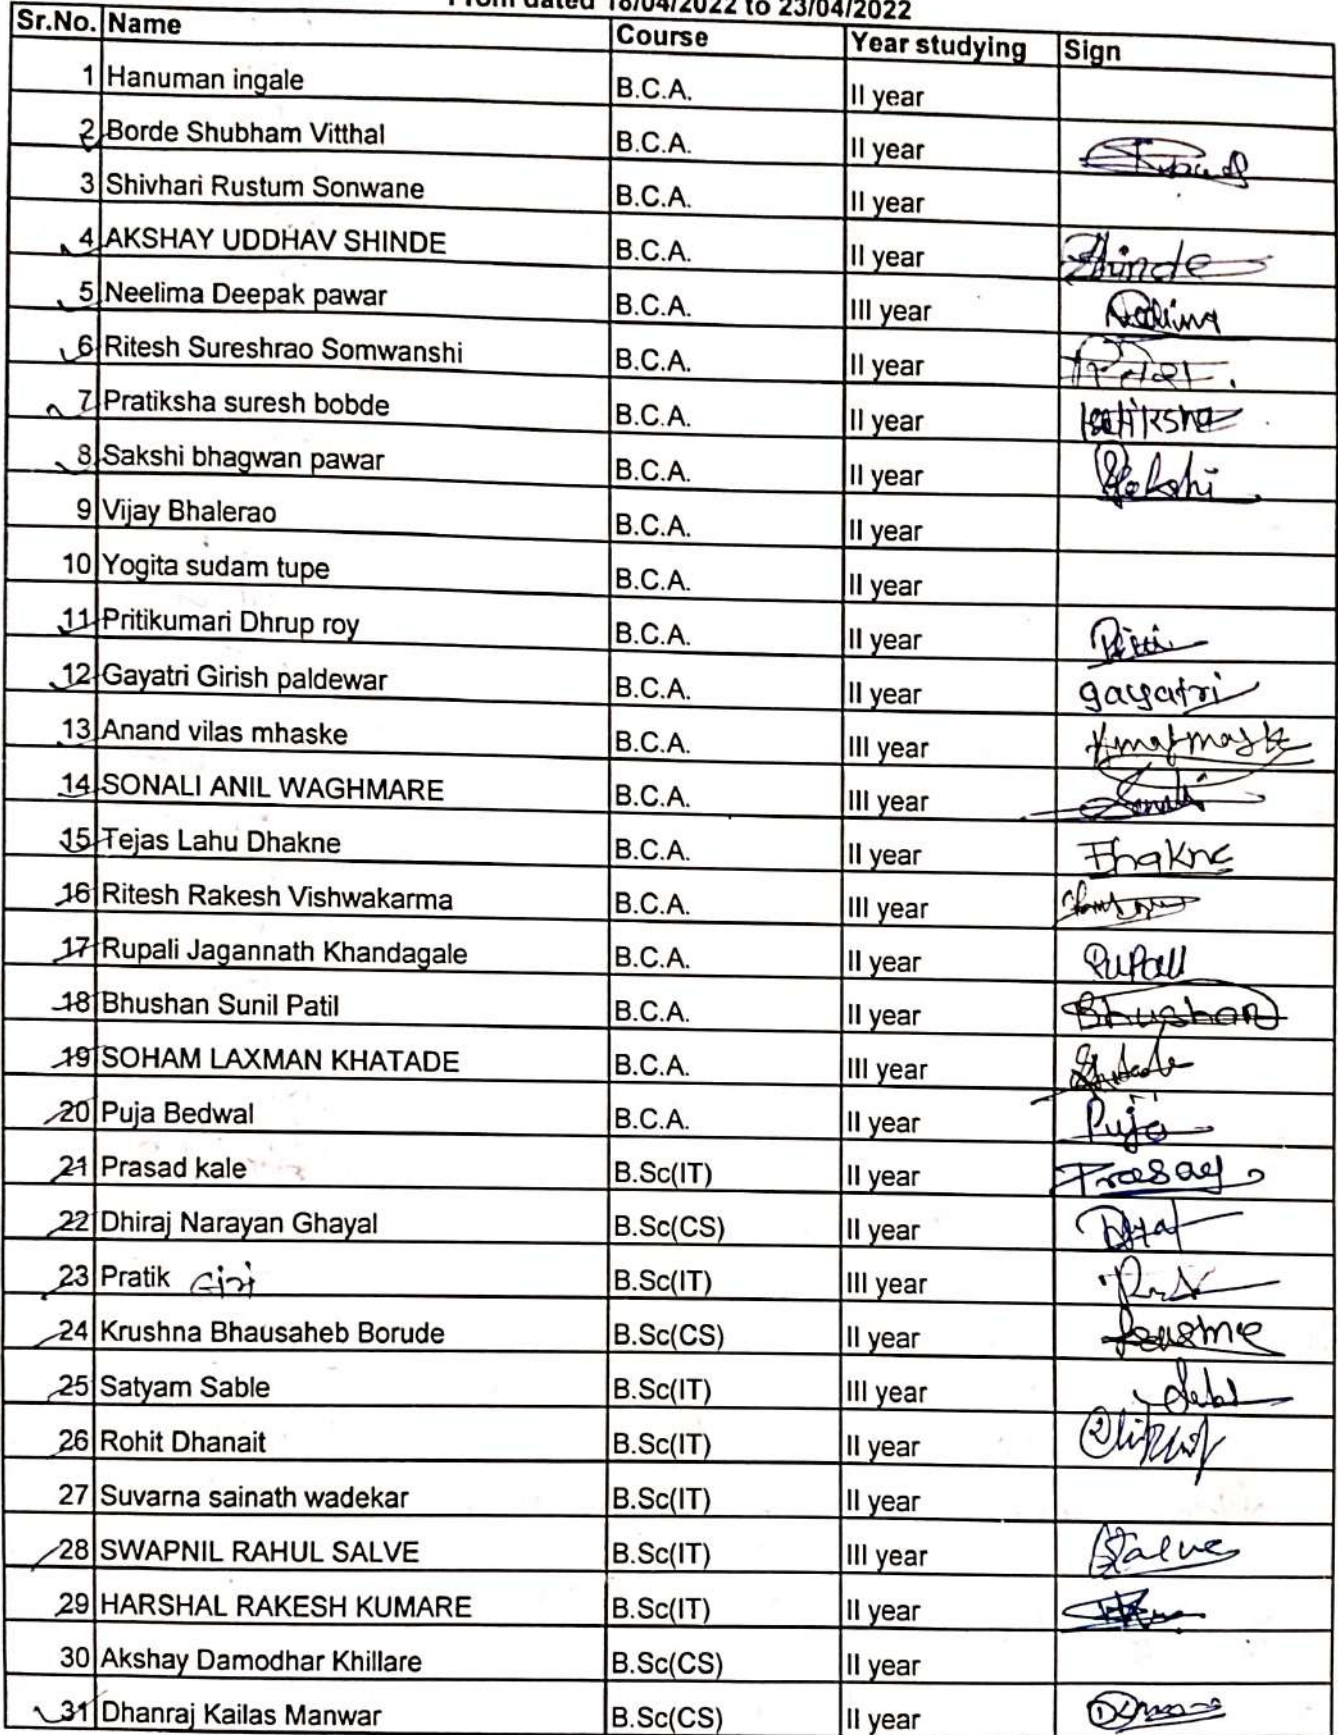 From dated 18/04/2022 to 23/04/2022
Sr.No. Name Course Year studying Sign
1 Hanuman ingale B.C.A. II year
2 Borde Shubham Vitthal B.C.A. II year
3 Shivhari Rustum Sonwane B.C.A. II year
4 AKSHAY UDDHAV SHINDE B.C.A. II year Shinde
5 Neelima Deepak pawar B.C.A. III year
6 Ritesh Sureshrao Somwanshi B.C.A. II year
7 Pratiksha suresh bobde B.C.A. II year
8 Sakshi bhagwan pawar B.C.A. II year Sakshi
9 Vijay Bhalerao B.C.A. II year
10 Yogita sudam tupe B.C.A. II year
11 Pritikumari Dhrup roy B.C.A. II year Priti
12 Gayatri Girish paldewar B.C.A. II year gayatri
13 Anand vilas mhaske B.C.A. III year
14 SONALI ANIL WAGHMARE B.C.A. III year
15 Tejas Lahu Dhakne B.C.A. II year
16 Ritesh Rakesh Vishwakarma B.C.A. III year
17 Rupali Jagannath Khandagale B.C.A. II year Rupali
18 Bhushan Sunil Patil B.C.A. II year Bhushan
19 SOHAM LAXMAN KHATADE B.C.A. III year
20 Puja Bedwal B.C.A. II year Puja
21 Prasad kale B.Sc(IT) II year Prasad
22 Dhiraj Narayan Ghayal B.Sc(CS) II year
23 Pratik Giri B.Sc(IT) III year
24 Krushna Bhausaheb Borude B.Sc(CS) II year
25 Satyam Sable B.Sc(IT) III year
26 Rohit Dhanait B.Sc(IT) II year
27 Suvarna sainath wadekar B.Sc(IT) II year
28 SWAPNIL RAHUL SALVE B.Sc(IT) III year Salve
29 HARSHAL RAKESH KUMARE B.Sc(IT) II year
30 Akshay Damodhar Khillare B.Sc(CS) II year
31 Dhanraj Kailas Manwar B.Sc(CS) II year